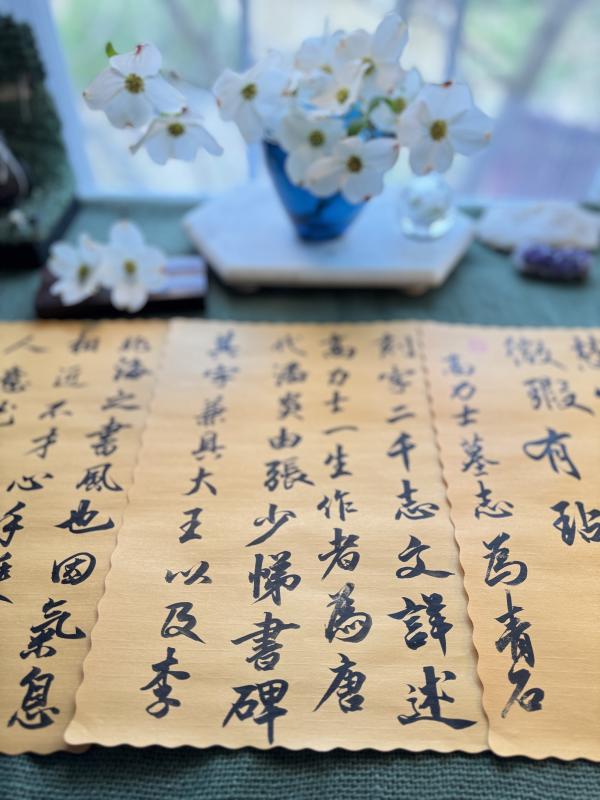 微瑕有玷
高力士墓志為青石
刻字二千志文詳述
高力士一生作者為唐
代潘炎由張少悌書碑
其字兼具大王以及李
北海之書風也因氣息
相近不才心手
人意